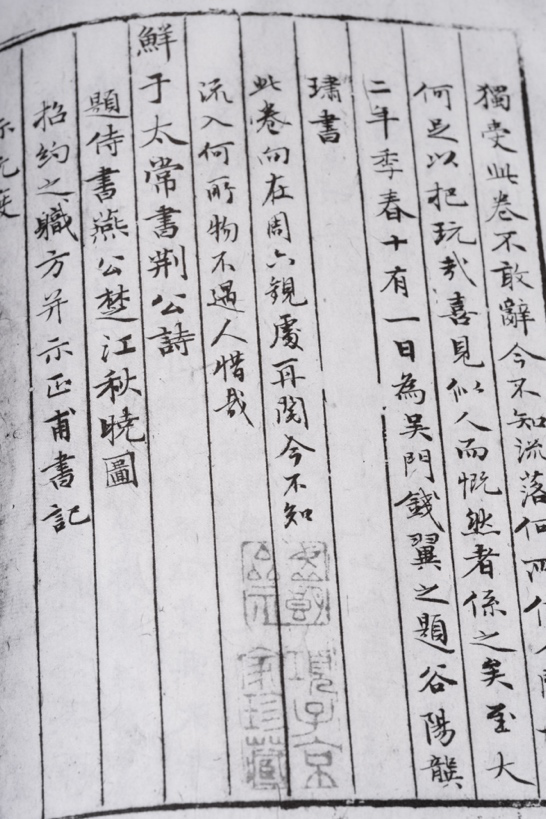 獨受此卷不敢辭今不知流落何所
何足以把玩哉喜見似人而慨然者係之矣至大
二年季春十有一日為吳門錢翼之題谷陽龔
璛書
此卷向在周六觀處再閱今不知
流入何所物不遇人惜哉
項子京家珍藏
鮮于太常書荆公詩
題侍書燕公楚江秋曉圖
招約之職方并示正甫書記
示元度